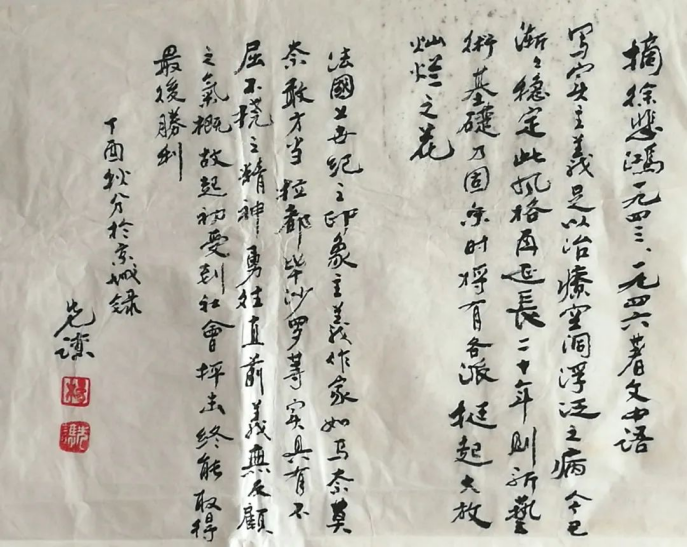 摘徐悲鸿一九四三、一九四六著文中语
写实主義足以治療空洞浮泛之病今已
漸々稳定此风格再延長二十年则新藝
術基礎乃固尔时将有各派挺起大放
灿烂之花
法國上世纪之印象主義作家如马奈莫
奈敢方当拉都毕沙罗等实具有不
屈不撓之精神勇往直前義無反顧
之氣概故起初受到社會抨击终能取得
最後勝利
丁酉秋分於京城録